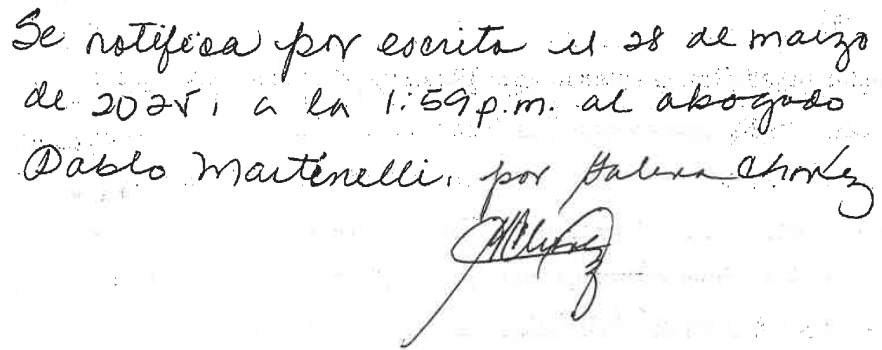 Se notifica por escrito el 28 de marzo
de 2025, a la 1:59 p.m. al abogado
Pablo Martinelli, por